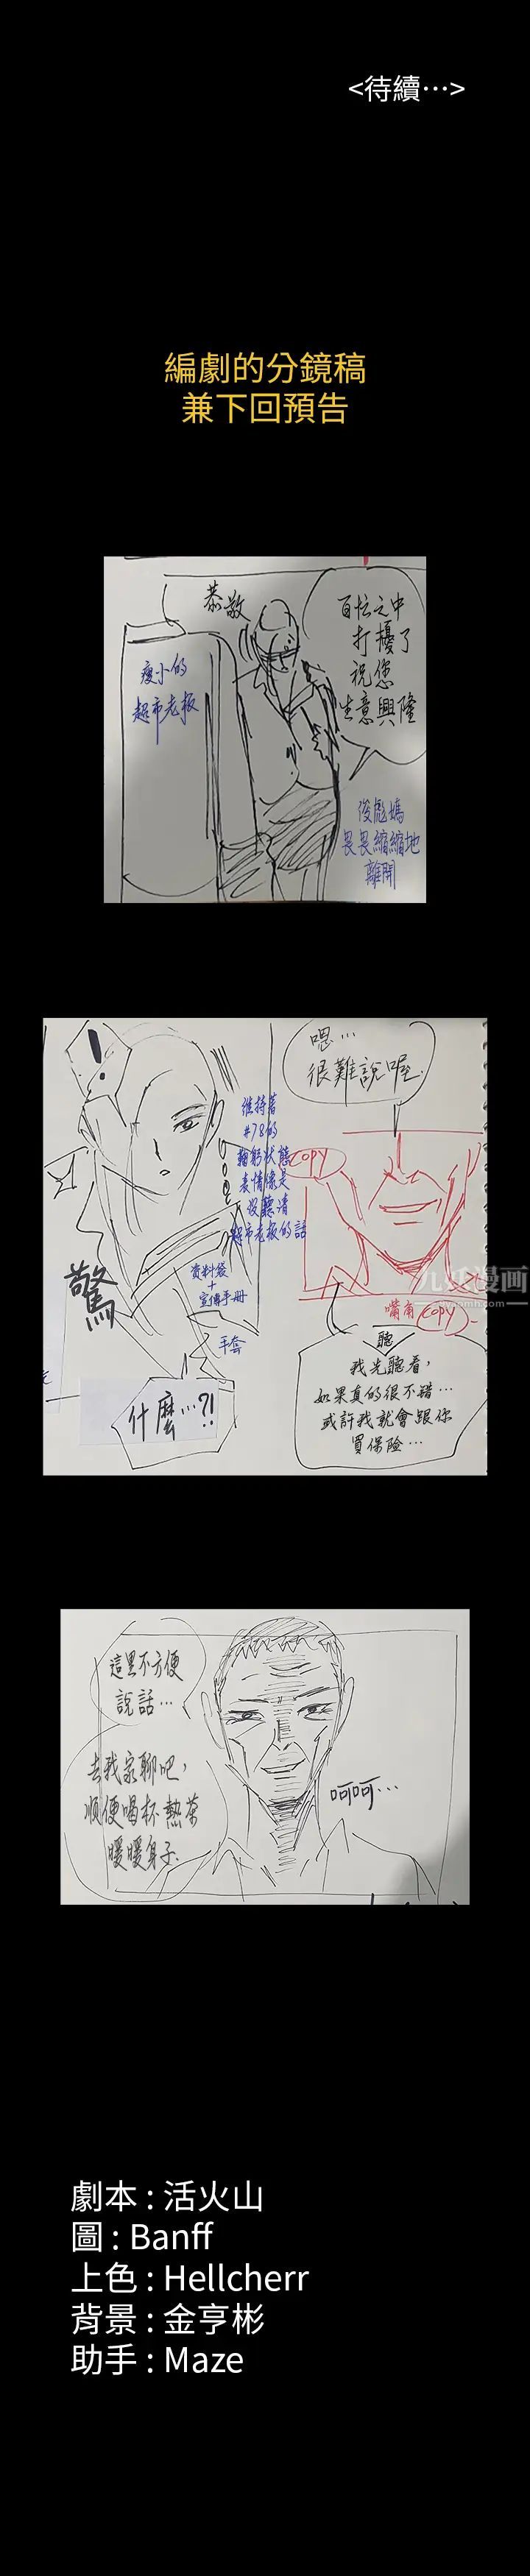 <待續…>
編劇的分鏡稿
兼下回預告
恭敬
百忙之中
打擾了
祝您
生意興隆
瘦小的
超市老板
俊彪媽
畏畏縮縮地
離開
嗯…
很難說喔.
!
維持著
#78的
鞠躬狀態
表情像是
沒聽清
超市老板的話
COPY
資料袋
+
宣傳手冊
手套
驚
什麼…?!
九妖漫画
嘴角 COPY
聽
我先聽看,
如果真的很不錯…
或許我就會跟你
買保險…
這里不方便
說話…
去我家聊吧,
順便喝杯熱茶
暖暖身子.
呵呵…
劇本 : 活火山
圖 : Banff
上色 : Hellcherr
背景 : 金亨彬
助手 : Maze